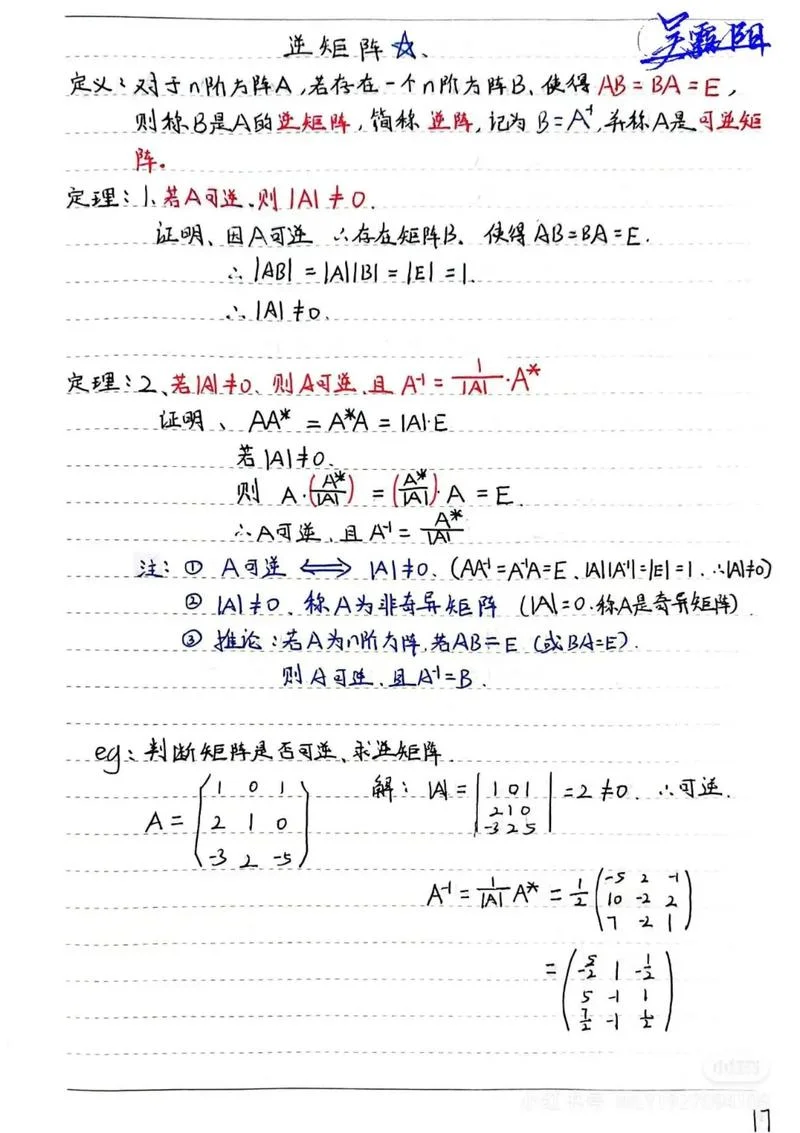 逆矩阵☆、
吴露阳
定义：对于n阶方阵A，若存在一个n阶方阵B、使得AB=BA=E，
则称B是A的逆矩阵，简称逆阵，记为B=A⁻¹，并称A是可逆矩
阵。
定理：1、若A可逆、则|A|≠0.
证明、因A可逆 ∴存在矩阵B、使得AB=BA=E.
∴|AB|=|A||B|=|E|=1.
∴|A|≠0.
定理：2、若|A|≠0、则A可逆、且A⁻¹=1/|A|·A*
证明、AA*=A*A=|A|·E
若|A|≠0.
则 A·(A*/|A|)=(A*/|A|)·A=E.
∴A可逆、且A⁻¹=A*/|A|
注：① A可逆 ⟺ |A|≠0、(AA⁻¹=A⁻¹A=E、|A||A⁻¹|=|E|=1.∴|A|≠0)
② |A|≠0、称A为非奇异矩阵 (|A|=0.称A是奇异矩阵).
③ 推论：若A为n阶方阵,若AB=E (或BA=E).
则A可逆、且A⁻¹=B.
eg：判断矩阵是否可逆、求逆矩阵.
A=(1 0 1
2 1 0
-3 2 -5)
解：|A|=|1 0 1
2 1 0
-3 2 5|=2≠0. ∴可逆.
A⁻¹=1/|A| A*=1/2(-5 2 -1
10 -2 2
7 -2 1)
=(-5/2 1 -1/2
5 -1 1
7/2 -1 1/2)
17